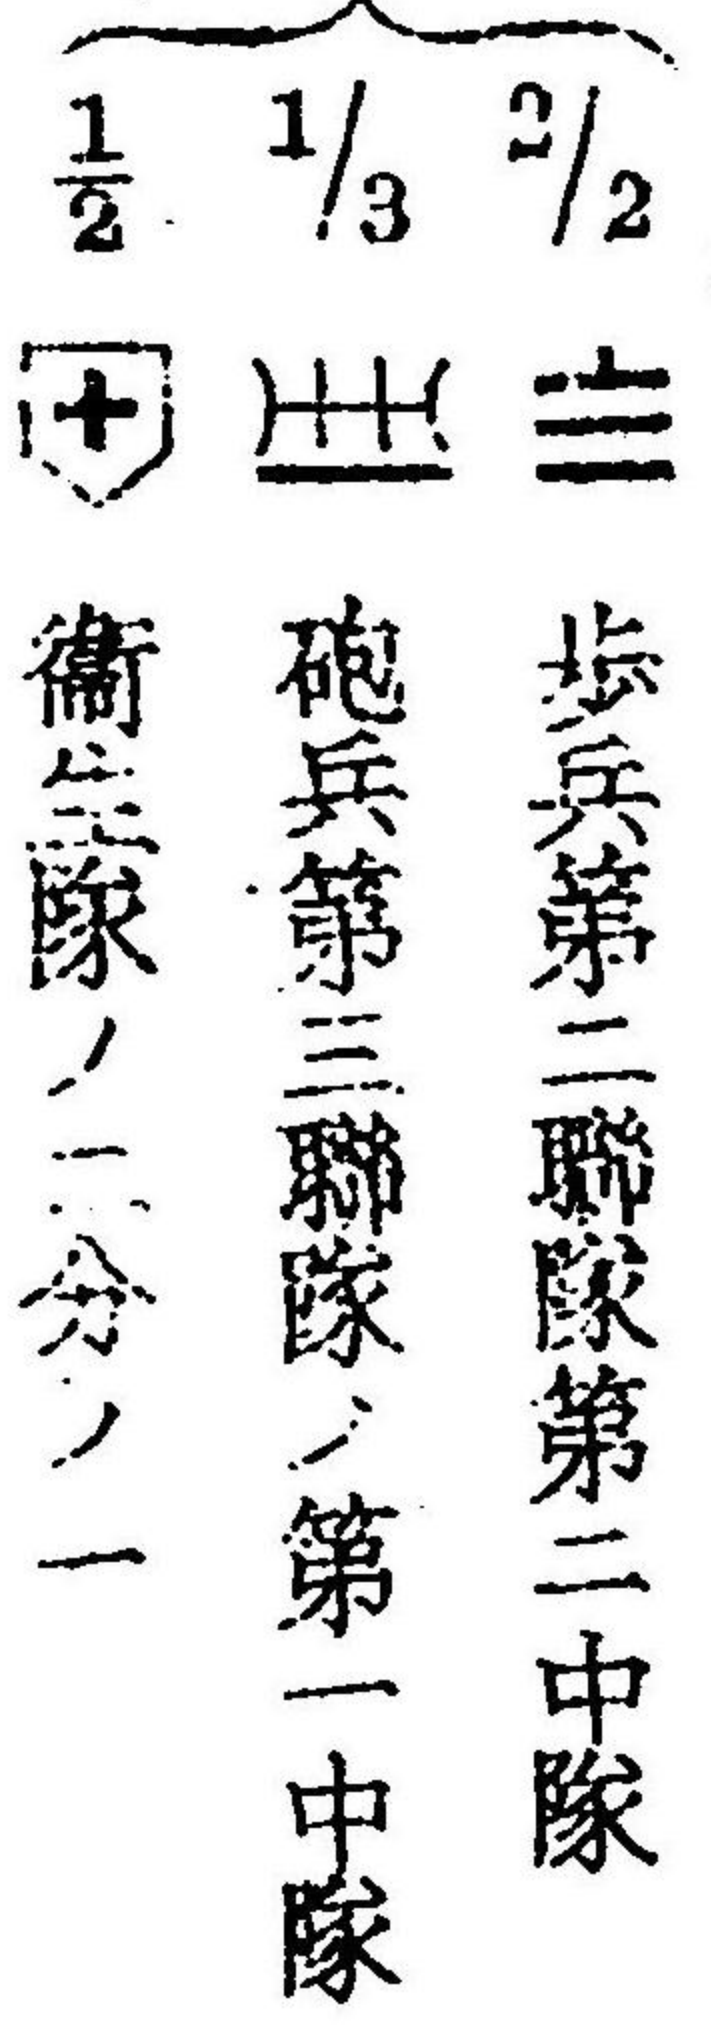 2/2
歩兵第二聯隊第二中隊
1/3
砲兵第三聯隊ノ第一中隊
1/2
衞生隊ノ二分ノ一